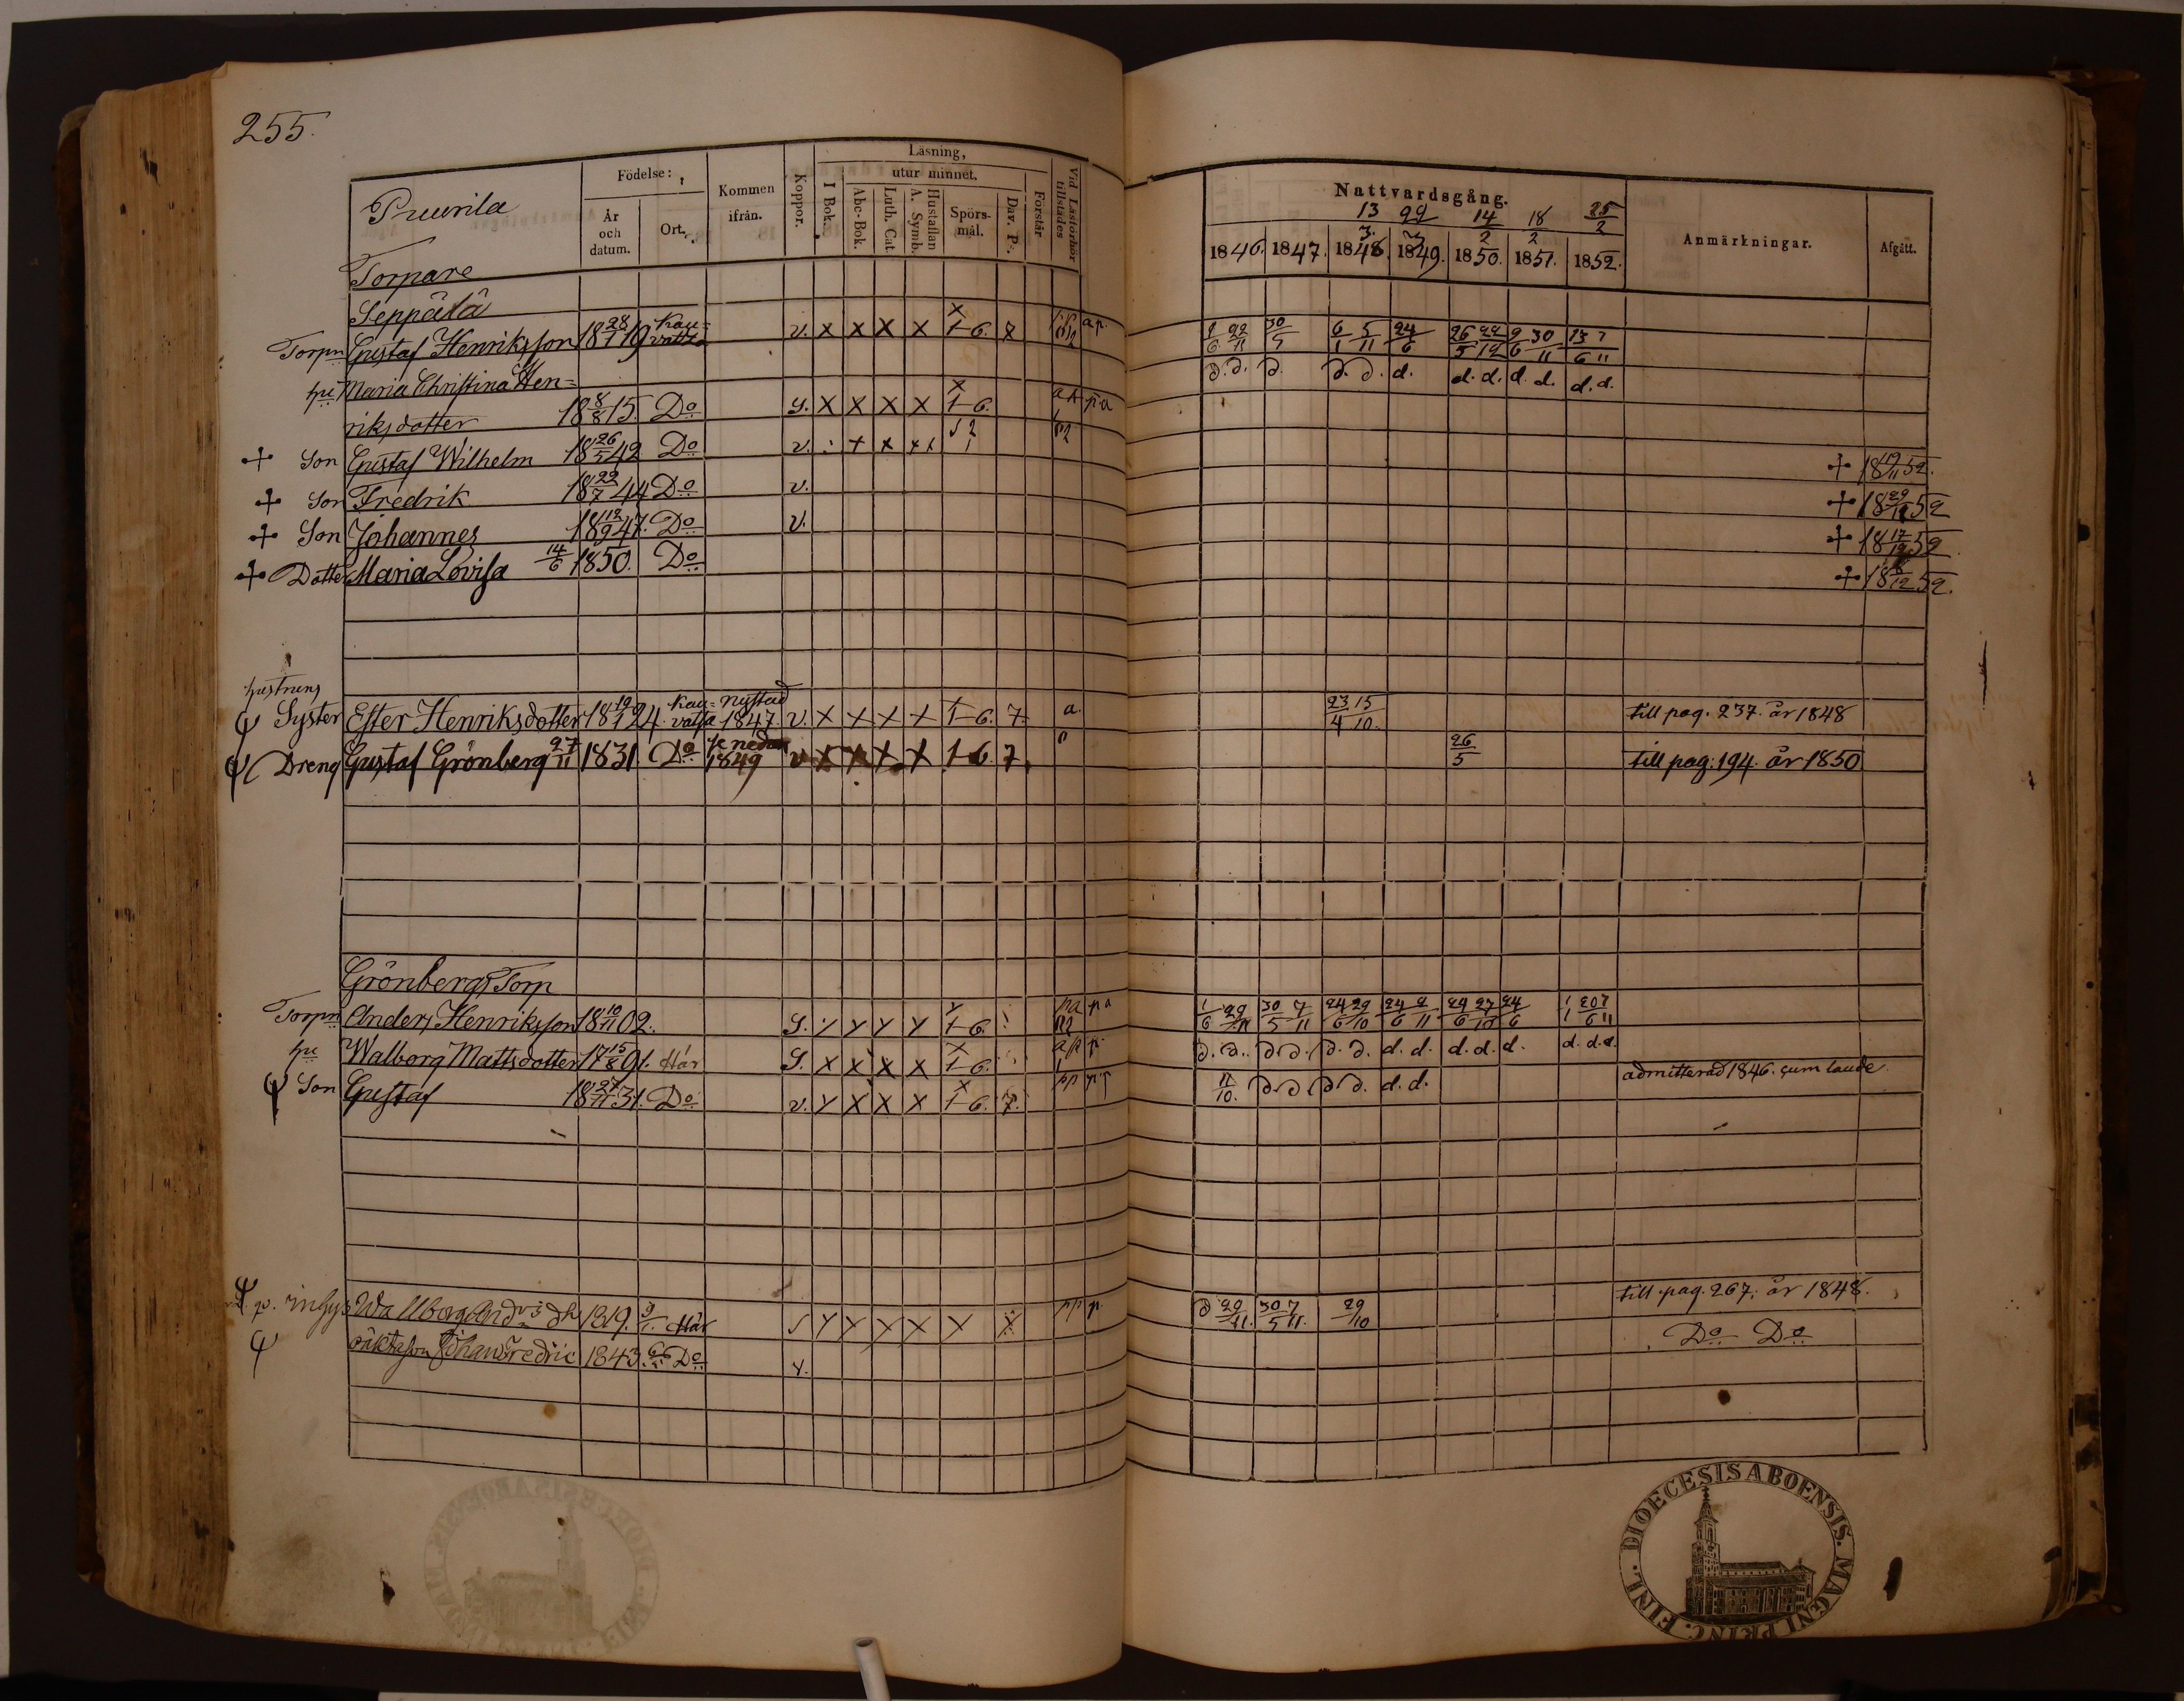 255.
Puurila
Födelse:
År och datum.
Ort.
Kommen ifrån.
Koppor.
Läsning,
I Bok.
utur minnet.
Abc-Bok.
Luth. Cat.
Hustaflan A. Symb.
Spörsmål.
Dav. Ps.
Förstår
Vid Läsförhör tillstädes
Nattvardsgång.
13 22 14 18 25
3. 3 2 2 2
1846. 1847. 1848. 1849. 1850. 1851. 1852.
Anmärkningar.
Afgått.
Torpare
Seppälä
Torpn Gustaf Henriksson 18 28/1 19 Kau=vatsa v. x x x x 1-6. x a p. 30/5 6/1 5/11 24/6 9/6 30/11
hu Maria Christina Hen=
riksdotter 18 8/8 15. Do S. x x x x 1-6. d. d. d. d. d. d. d. d. d. d. d. d.
+ Son Gustaf Wilhelm 18 26/5 42 Do v. + 18 19/11 52.
+ Son Fredrik 18 22/7 44 Do v. + 18 29/12 52
+ Son Johannes 18 12/9 47. Do v. + 18 17/12 52
+ Dotter Maria Lovisa 14/6 1850. Do + 18 /12 52.
hustruns
Syster Ester Henriksdotter 18 19/1 24. Kau=vatsa Nystad 1847. v. x x x x 1-6. 7. a. 23/4 15/10. till pag. 237. år 1848
Dreng Gustaf Grönberg 27/11 1831. Do 1849 v x x x x 1-6. 7. 26/5 till pag. 194. år 1850
Grönbergs Torp
Torpn Anders Henriksson 18 10/11 02. S. 1-6. pa pa 1/6 29/11 30/5 7/11 24/6 29/10 24/6 2/11
hu Walborg Mattsdotter 17 15/8 91. Här S. x x x x 1-6. d. d. d. d. d. d. d. d. d. d. d. d. d. d.
Son Gustaf 18 27/11 31. Do v. x x x 1-6. 7. pp pp 11/10. d. d. d. d. d. d. admitterad 1846. cum laude
p. inhys Wallborg And dr 1819. Här x x x x pp p. d 29/11. 30/5 7/11. 29/10 till pag. 267. år 1848.
oäkta son Johan Fredric 1843. Do Do Do
DIOECESIS ABOENSIS. MAGNI PRINC. FINL.